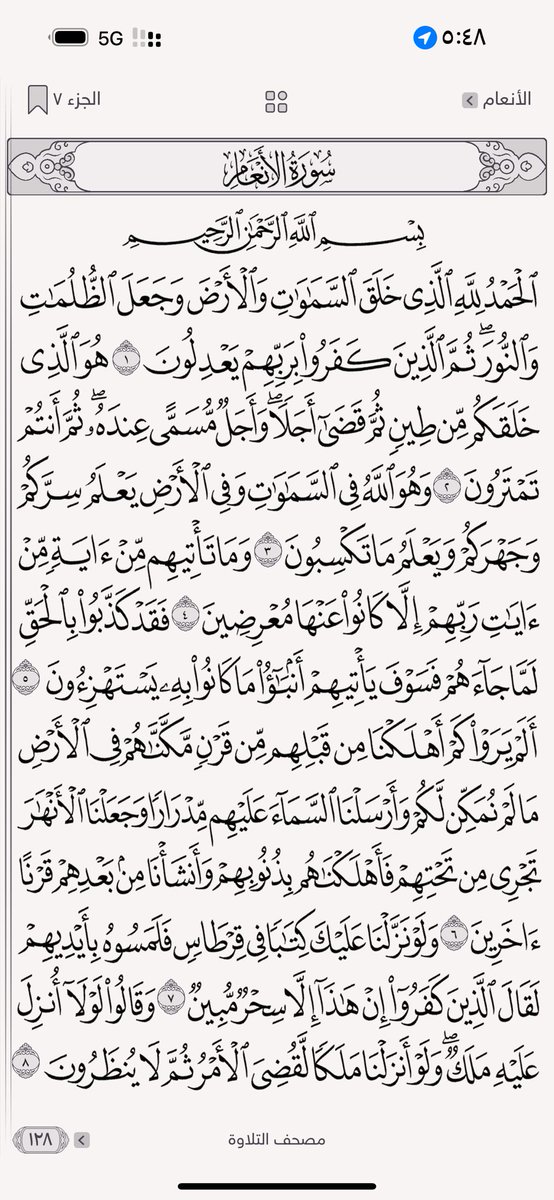 ٥:٤٨ 5G
الأنعام الجزء ٧
سُورَةُ الأَنْعَامِ
بِسْمِ ٱللَّهِ ٱلرَّحْمَٰنِ ٱلرَّحِيمِ
ٱلْحَمْدُ لِلَّهِ ٱلَّذِى خَلَقَ ٱلسَّمَٰوَٰتِ وَٱلْأَرْضَ وَجَعَلَ ٱلظُّلُمَٰتِ
وَٱلنُّورَۖ ثُمَّ ٱلَّذِينَ كَفَرُوا۟ بِرَبِّهِمْ يَعْدِلُونَ ١ هُوَ ٱلَّذِى
خَلَقَكُم مِّن طِينٍ ثُمَّ قَضَىٰٓ أَجَلًاۖ وَأَجَلٌ مُّسَمًّى عِندَهُۥۖ ثُمَّ أَنتُمْ
تَمْتَرُونَ ٢ وَهُوَ ٱللَّهُ فِى ٱلسَّمَٰوَٰتِ وَفِى ٱلْأَرْضِ يَعْلَمُ سِرَّكُمْ
وَجَهْرَكُمْ وَيَعْلَمُ مَا تَكْسِبُونَ ٣ وَمَا تَأْتِيهِم مِّنْ ءَايَةٍ مِّنْ
ءَايَٰتِ رَبِّهِمْ إِلَّا كَانُوا۟ عَنْهَا مُعْرِضِينَ ٤ فَقَدْ كَذَّبُوا۟ بِٱلْحَقِّ
لَمَّا جَآءَهُمْ فَسَوْفَ يَأْتِيهِمْ أَنۢبَٰٓؤُا۟ مَا كَانُوا۟ بِهِۦ يَسْتَهْزِءُونَ ٥
أَلَمْ يَرَوْا۟ كَمْ أَهْلَكْنَا مِن قَبْلِهِم مِّن قَرْنٍ مَّكَّنَّٰهُمْ فِى ٱلْأَرْضِ
مَا لَمْ نُمَكِّن لَّكُمْ وَأَرْسَلْنَا ٱلسَّمَآءَ عَلَيْهِم مِّدْرَارًا وَجَعَلْنَا ٱلْأَنْهَٰرَ
تَجْرِى مِن تَحْتِهِمْ فَأَهْلَكْنَٰهُم بِذُنُوبِهِمْ وَأَنشَأْنَا مِنۢ بَعْدِهِمْ قَرْنًا
ءَاخَرِينَ ٦ وَلَوْ نَزَّلْنَا عَلَيْكَ كِتَٰبًا فِى قِرْطَاسٍ فَلَمَسُوهُ بِأَيْدِيهِمْ
لَقَالَ ٱلَّذِينَ كَفَرُوٓا۟ إِنْ هَٰذَآ إِلَّا سِحْرٌ مُّبِينٌ ٧ وَقَالُوا۟ لَوْلَآ أُنزِلَ
عَلَيْهِ مَلَكٌۖ وَلَوْ أَنزَلْنَا مَلَكًا لَّقُضِىَ ٱلْأَمْرُ ثُمَّ لَا يُنظَرُونَ ٨
مصحف التلاوة ١٢٨